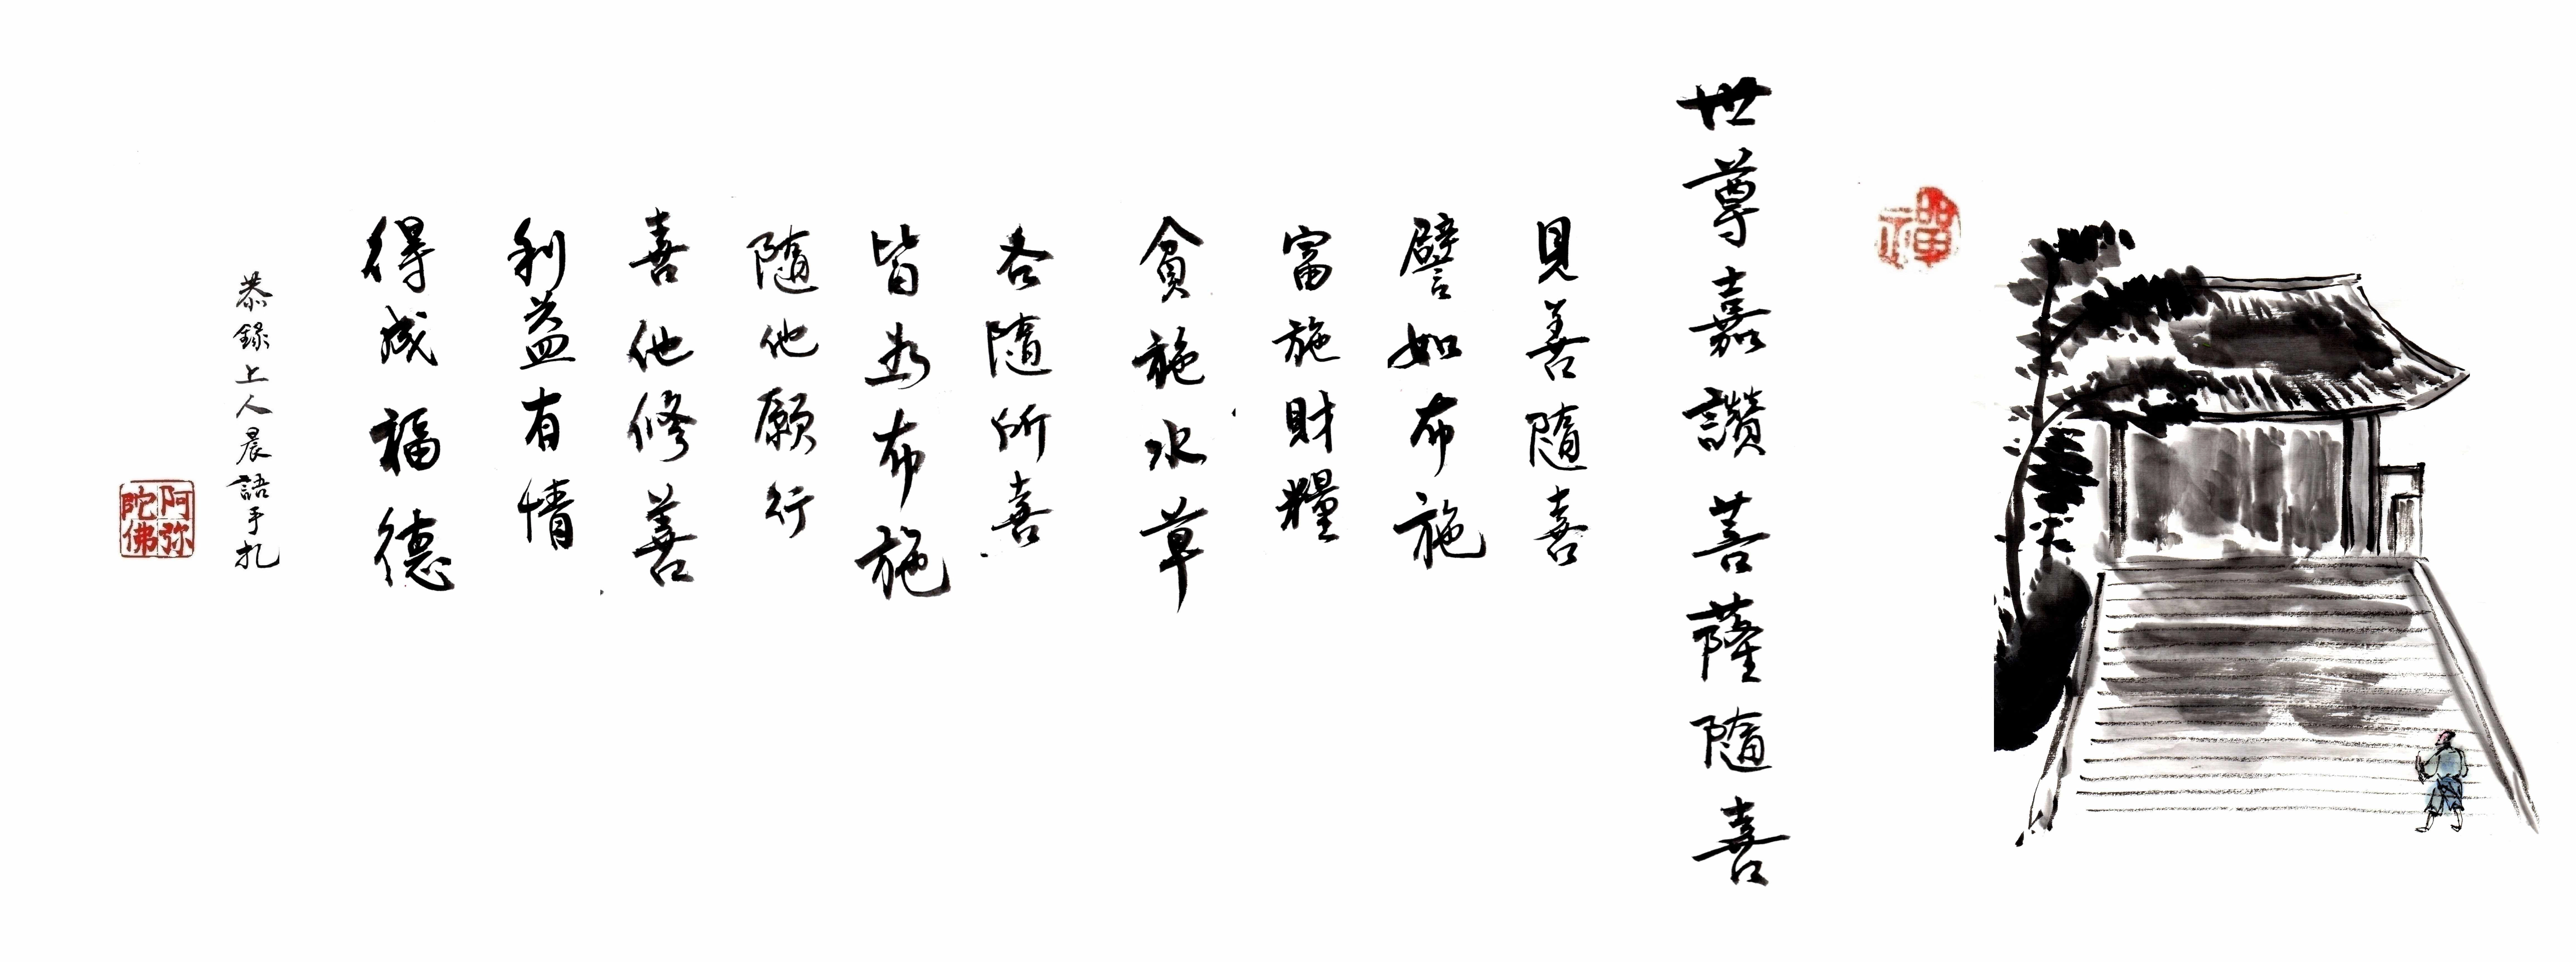 禪
世尊嘉讚菩薩隨喜
見善隨喜
譬如布施
富施財糧
貧施水草
各隨所喜
皆為布施
隨他願行
喜他修善
利益有情
得成福德
恭錄上人晨語手扎
阿弥
陀佛